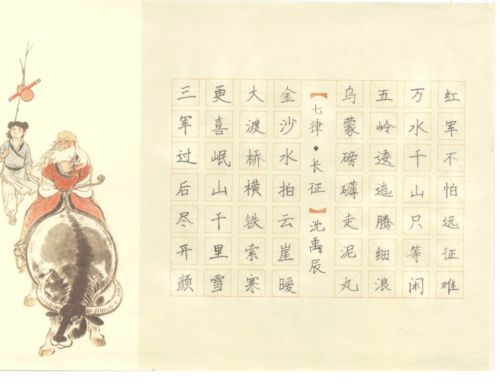 红军不怕远征难
万水千山只等闲
五岭逶迤腾细浪
乌蒙磅礴走泥丸
【七律·长征】沈禹辰
金沙水拍云崖暖
大渡桥横铁索寒
更喜岷山千里雪
三军过后尽开颜